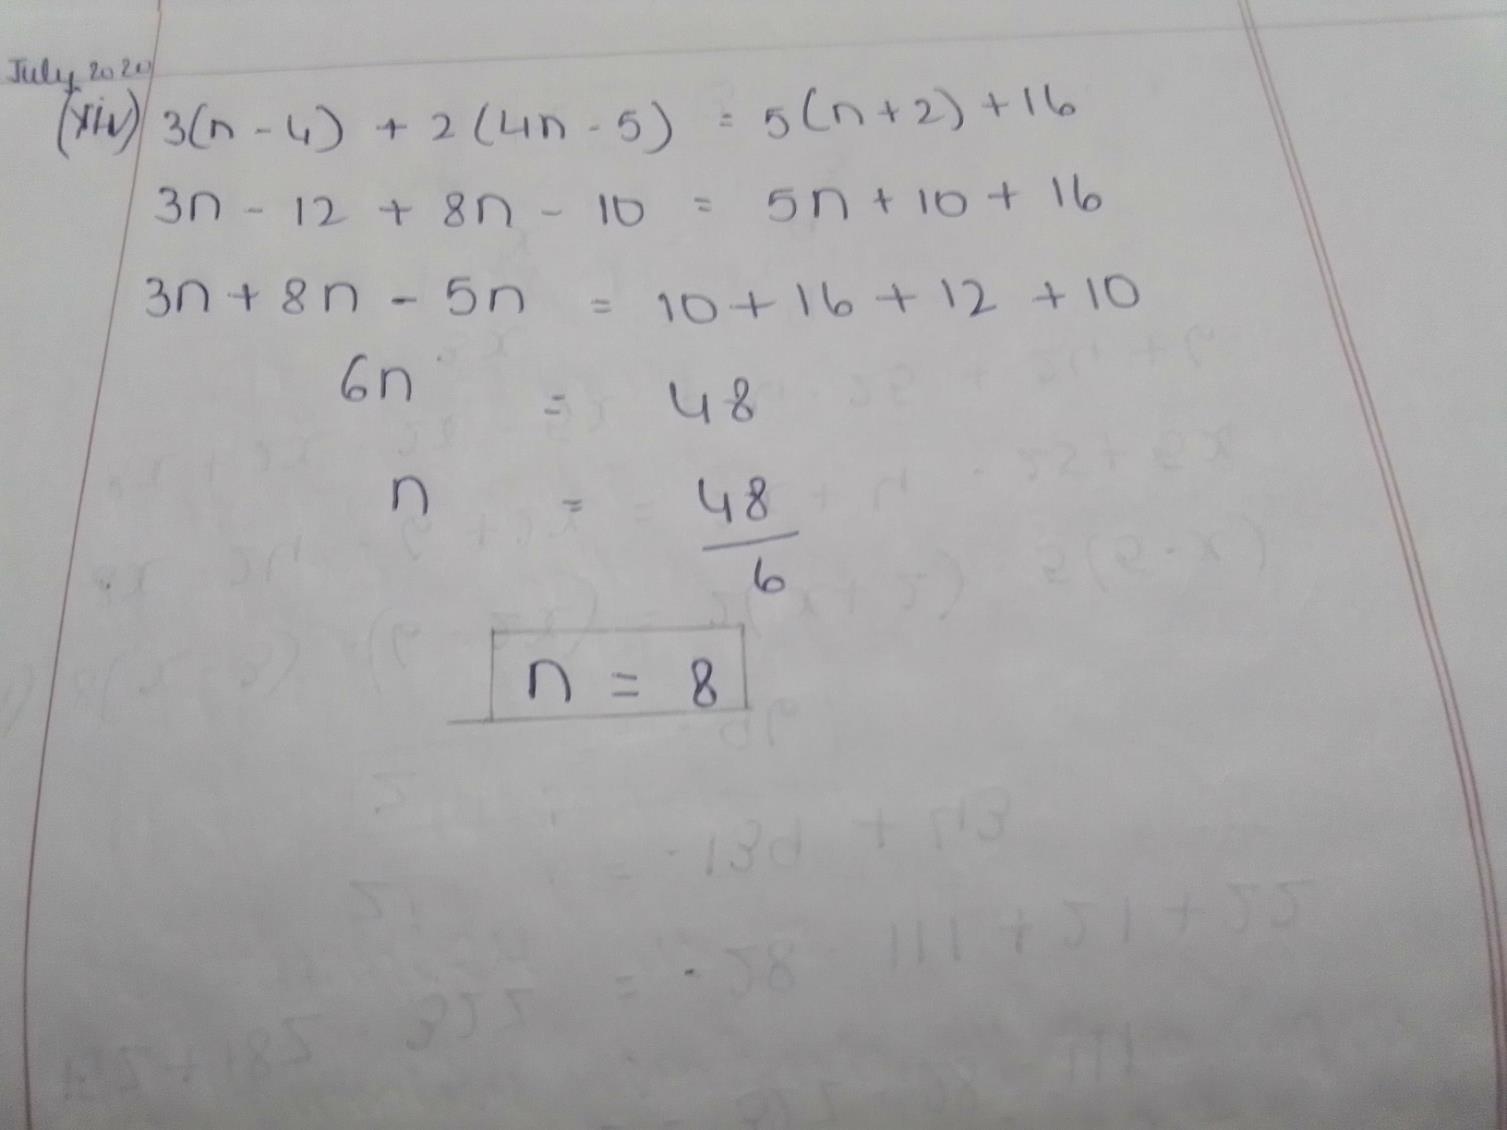 July 2020
(xiv) 3(n - 4) + 2(4n - 5) = 5(n + 2) + 16
3n - 12 + 8n - 10 = 5n + 10 + 16
3n + 8n - 5n = 10 + 16 + 12 + 10
6n = 48
n = 48
6
n = 8